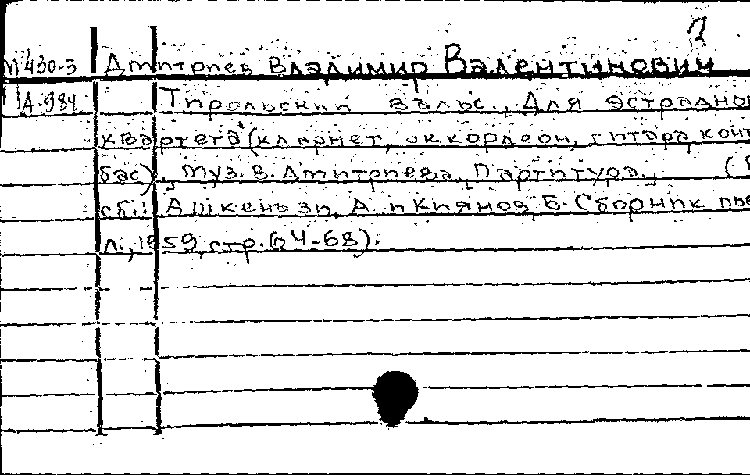 2
М430-3 Дмитриев Владимир Валентинович
А-984 Тирольский вальс. Для эстрадно
квартета (кларнет, аккордеон, гитара, конт
бас). Муз. В. Дмитриева. Партитура. (
сб.: Ашкенази, А. и Киянов, Б. Сборник пье
Л., 1959, стр. 64-68).